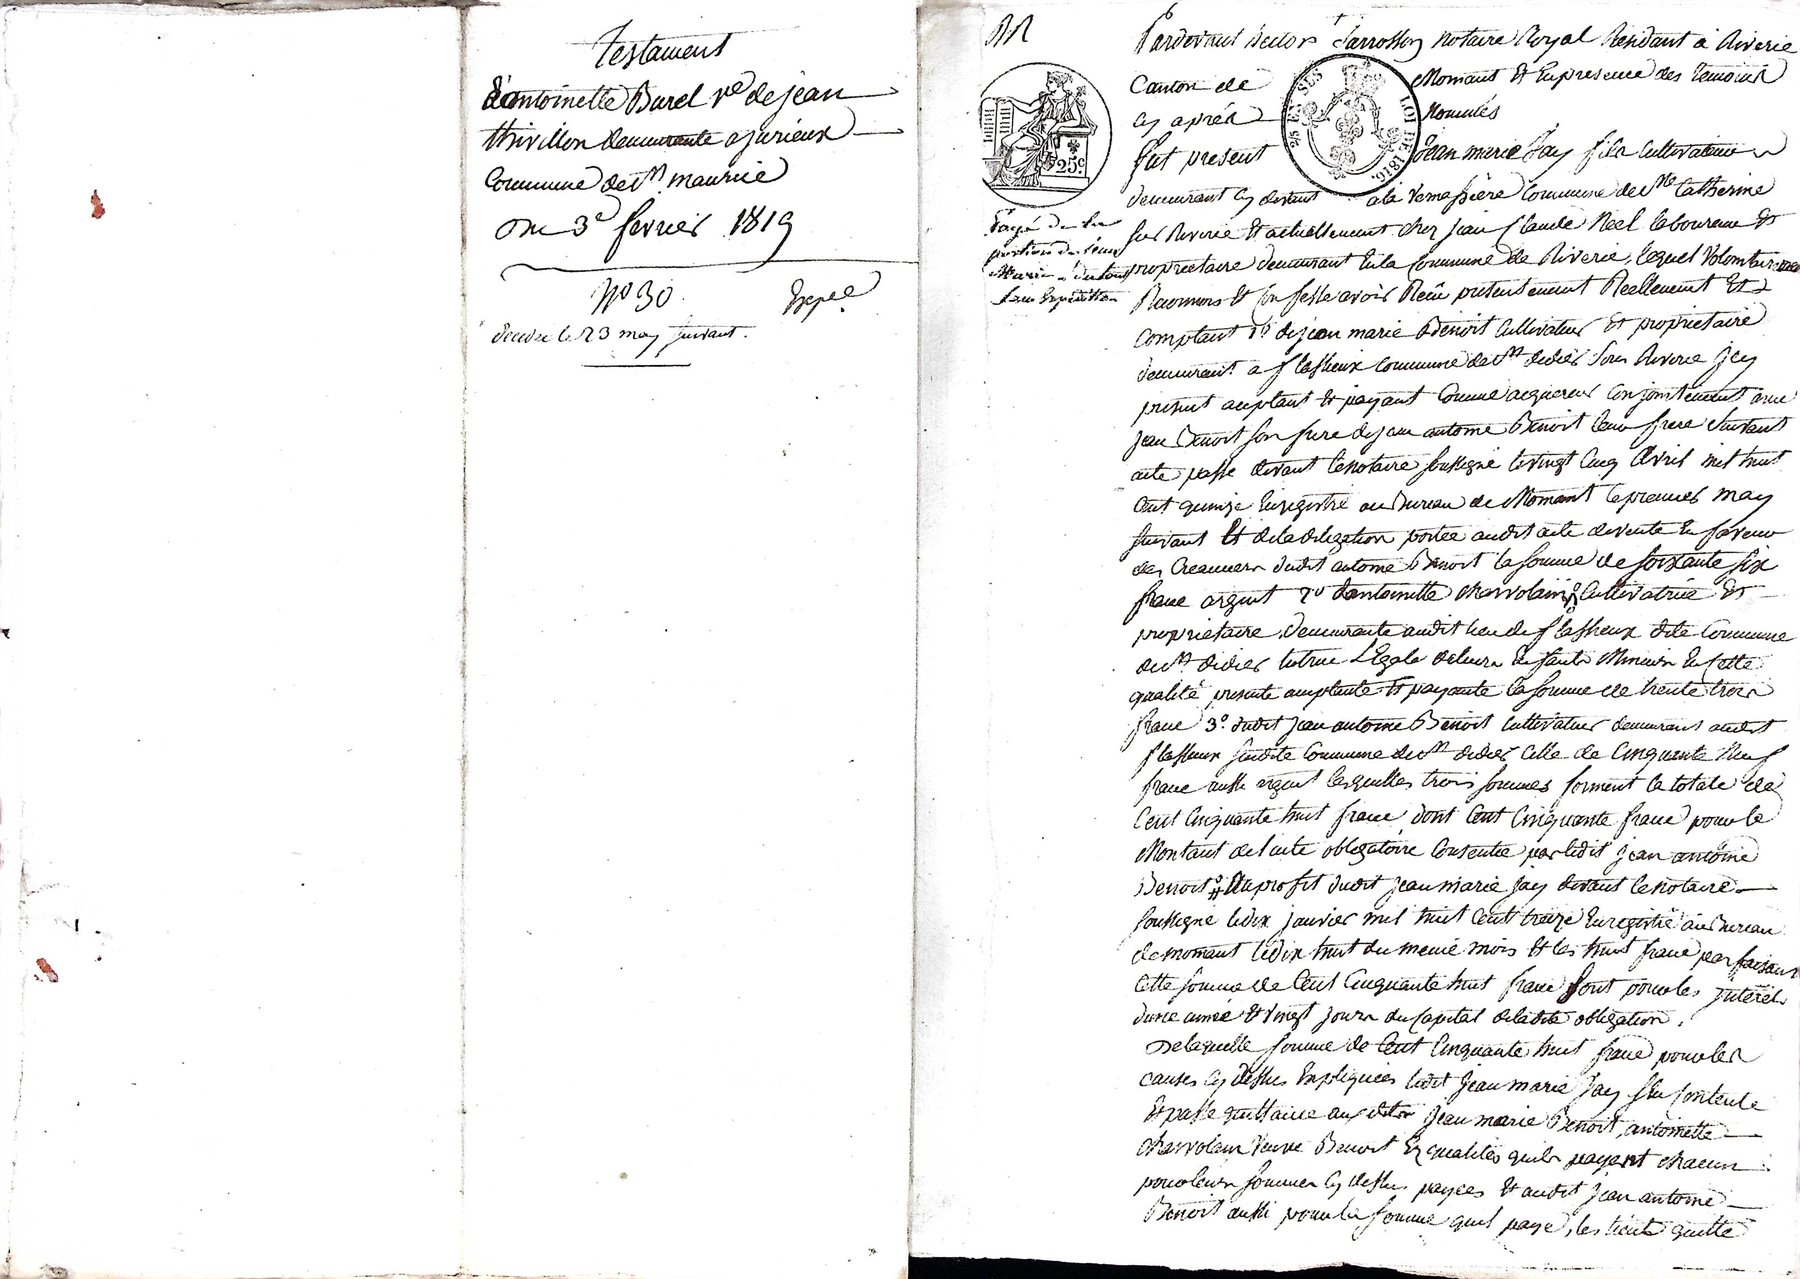 Testament
d'antoinette Burel Ve de jean
thivillon demeurante a jurieux
Commune de St maurice
Du 3e fevrier 1819
No 30 Expee
decedee le 23 may suivant.
Pardevant hector Sarrosson Notaire Royal Résidant à Riverie
Canton de Mornant Et En presence des temoins
Cy aprés Nommés
fut present Jean marie Jay fils Cultivateur
demeurant Cy devant à la Commune de Ste Catherine
sur Riverie Et actuellement chez jean Claude Néel laboureur Et
proprietaire demeurant En la Commune de Riverie, lequel Volontairement
Reconnois Et Confesse avoir Recû presentement Réellement Et
Comptant 1o de jean marie Benoit Cultivateur Et proprietaire
demeurant a flassieux Commune de St didier Sous Riverie Jcy
present acceptant Et payant Comme acquereur Conjointement avec
jean Benoit son frere de jean antoine Benoit leur frere Suivant
acte passé devant le Notaire soussigné le vingt Cinq Avril mil huit
Cent quinze Enregistré au Bureau de Mornant le premier may
suivant Et de la deligation portée audit acte de vente En faveur
des Creanciers dudit antoine Benoit la somme de soixante six
franc argent 2o d'antoinette charvolain Cultivatrice Et
proprietaire, demeurante audit lieu de flassieux dite Commune
de St didier tutrice Légale de leurs Enfants Mineurs En Cette
qualité presente acceptante Et payante la somme de trente trois
franc 3o dudit jean antoine Benoit Cultivateur demeurant audit
flassieux susdite Commune de St didier Celle de Cinquante Neuf
franc aussi argent lesquelles trois sommes forment le totale de
Cent Cinquante huit franc dont Cent Cinquante franc pour le
Montant de l'acte obligatoire Consentie par ledit jean antoine
Benoit Au profit dudit jean marie jay devant le Notaire
soussigné le dix janvier mil huit Cent treize Enregistré au Bureau
de mornant le dix huit du meme mois Et les huit franc parfaisant
Cette somme de Cent Cinquante huit franc sont pour les interêt
d'une année Et vingt jours du Capital de la dite obligation.
De laquelle somme de Cent Cinquante huit franc pour les
causes Cy dessus Expliquées ledit jean marie Jay s'En Contente
Et passe quittance aux dits jean marie Benoit, antoinette
charvolain Veuve Benoit Es qualités qu'ils payent chacun
pour leurs sommes Cy dessus payées Et audit jean antoine
Benoit aussi pour la somme quil paye, les tients quitte
2/5 EN SUS
LOI DE 1816.
25c